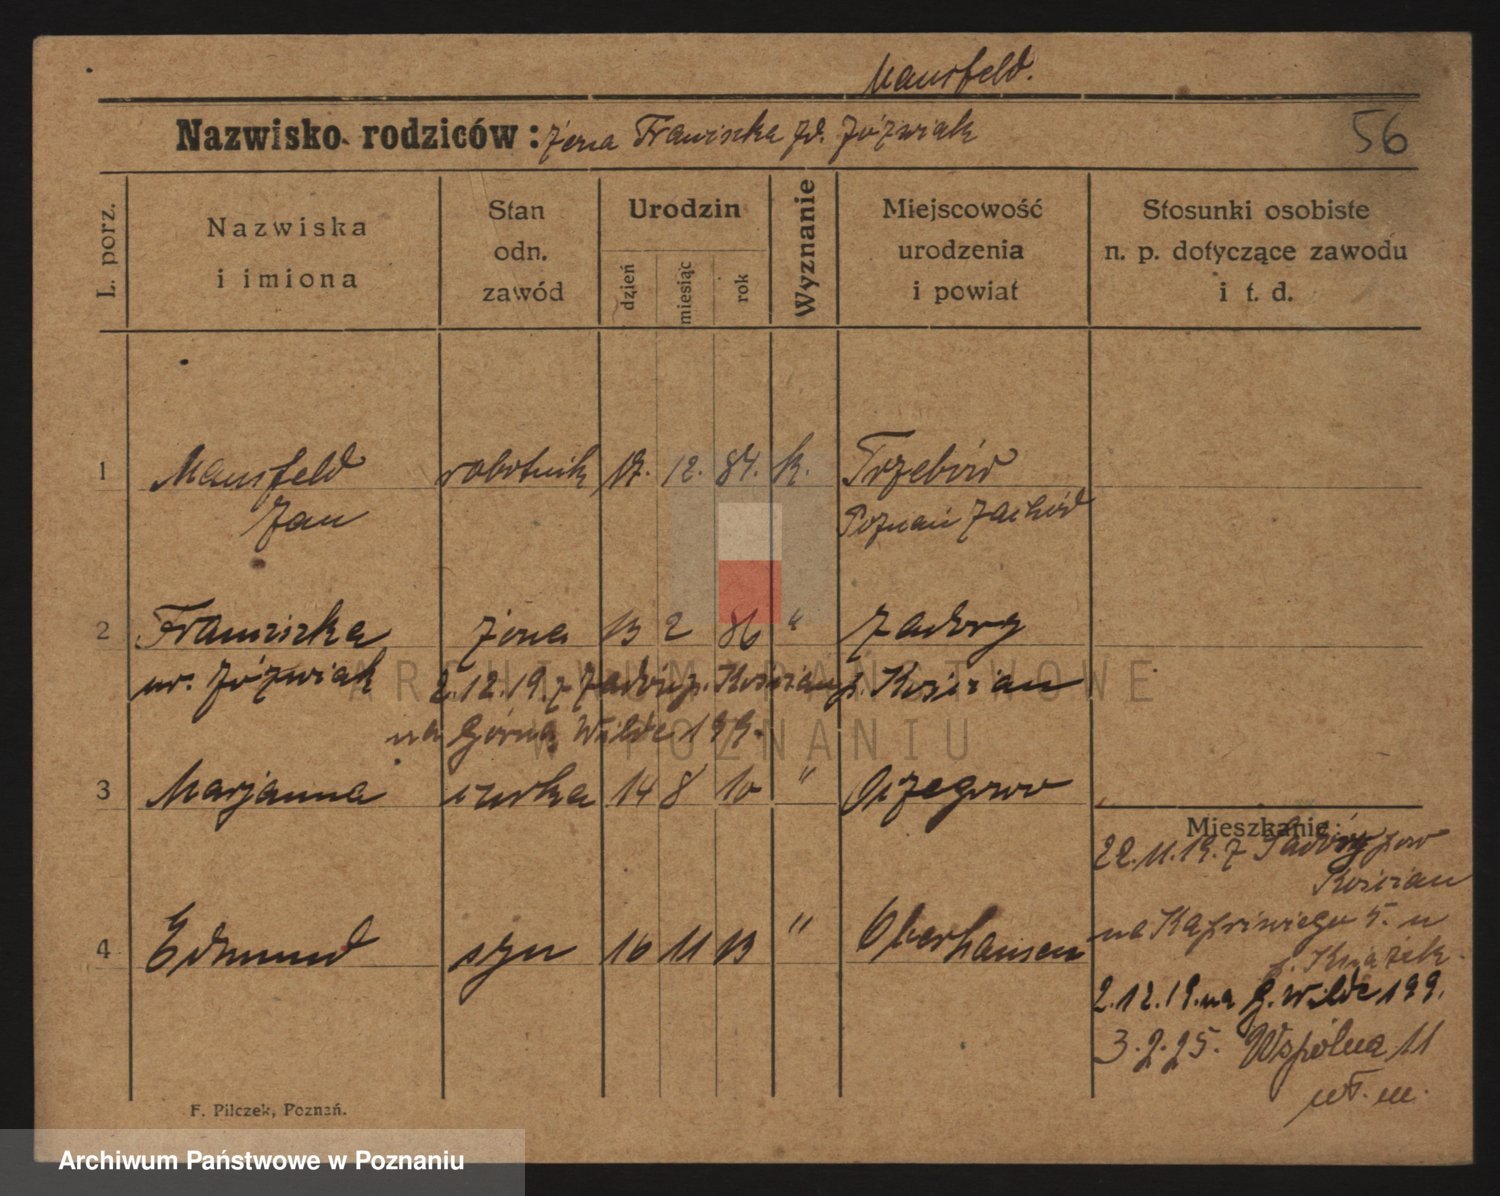 Mansfeld.
Nazwisko rodziców: żona Franciszka zd. Józwiak
56
L. porz.
Nazwiska i imiona
Stan odn. zawód
Urodzin
dzień miesiąc rok
Wyznanie
Miejscowość urodzenia i powiat
Stosunki osobiste n. p. dotyczące zawodu i t. d.
1 Mansfeld robotnik 17. 12. 84. k.
Jan Poznań Zachód
2 Franciszka żona 13 2 86 "
ur. Józwiak 2.12.19. z p. Kościan p. Kościan
na Górna Wilde 199.
3 Marjanna córka 14 8 10 "
Mieszkanie:
22.11.19. z pow
Kościan
4 Edmund syn 16 11 13 " Oberhausen
na 5. u
p. Książek.
2.12.19. na G. Wilde 199.
3.2.25. Wspólna 11
F. Pilczek, Poznań.
wł. m.
ARCHIWUM PAŃSTWOWE
W POZNANIU
Archiwum Państwowe w Poznaniu